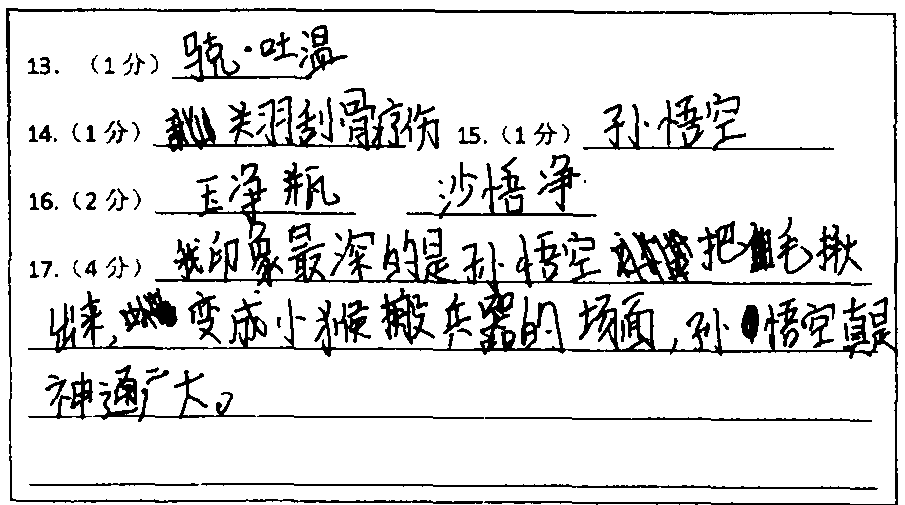 13. （1分）骁·吐温
14.（1分）关羽刮骨疗伤 15.（1分）孙悟空
16.（2分）玉净瓶 沙悟净
17.（4分）我印象最深的是孙悟空把毛揪
出来，变成小猴搬兵器的场面，孙悟空真是
神通广大。